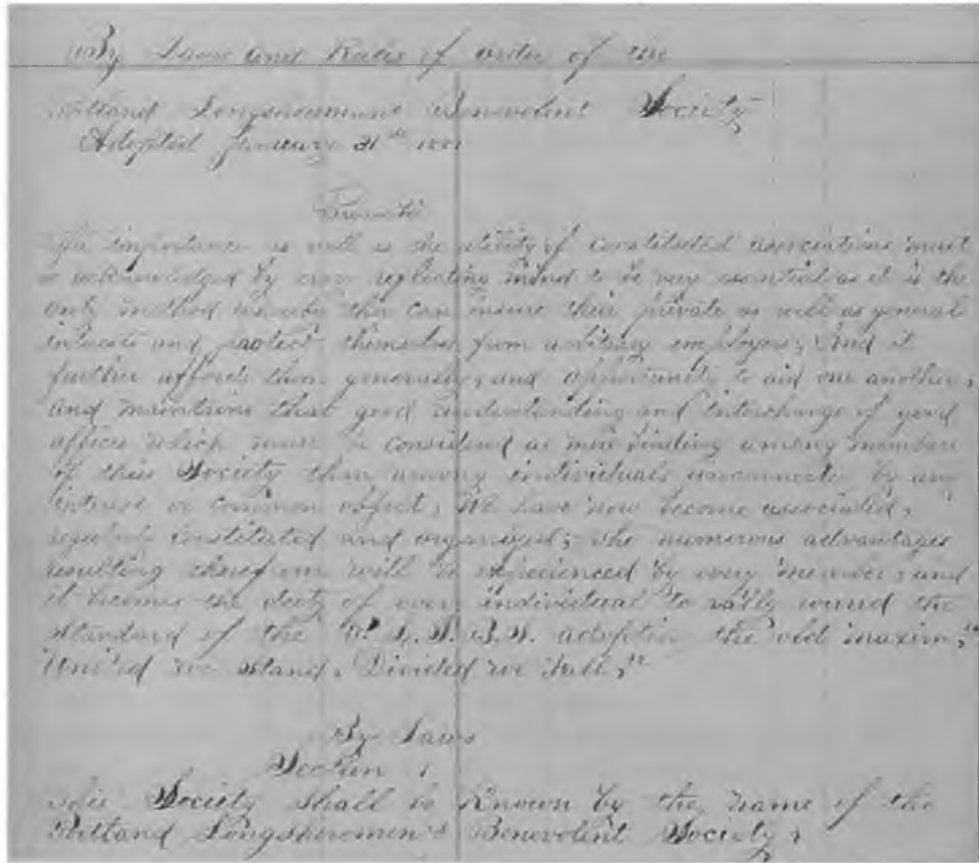 By Laws and Rules of order of the
Portland Longshoremens Benevolent Society
Adopted January 31st
Preamble
The importance as well as the utility of constituted associations must
be acknowledged by every reflecting mind to be very essential as it is the
only method whereby they can insure their private as well as general
interests and protect themselves from arbitrary employers, And it
further affords them generally, and opportunity to aid one another,
and maintains that good understanding and interchange of good
offices which must be considered as more binding among members
of this Society than among individuals unconnected by any
interest or common object, We have now become associated,
regularly constituted and organized; the numerous advantages
resulting therefrom will be experienced by every member, and
it becomes the duty of every individual to rally round the
standard of the P. L. S. B. S. adopting the old maxim, "
United we stand, Divided we fall, "
By Laws
Section 1
This Society shall be Known by the name of the
Portland Longshoremen's Benevolent Society,